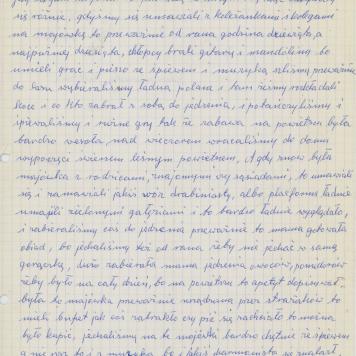 się różnie, gdyśmy się umawiali z koleżankami i kolegami
na majówkę to przeważnie od rana godzina dziewiąta a
najpóźniej dziesiąta, chłopcy brali gitary i mandoliny bo
umieli grać i pieszo ze śpiewem i muzyką szliśmy przeważnie
do lasu wybieraliśmy ładną polanę i tam żeśmy rozkładali
koce i co kto zabrał z sobą do jedzenia, i potańczyliśmy i
śpiewaliśmy i różne gry tak że zabawa na powietrzu była
bardzo wesoła, nad wieczorem wracaliśmy do domu
wypoczęci świeżem leśnym powietrzem. A gdy znów była
majówka z rodzicami, znajomymi czy sąsiadami, to umawiali
się i zamawiali jakiś wóz drabiniasty, albo platformę ładnie
umajili zielonymi gałęziami i to bardzo ładnie wyglądało,
i zabieraliśmy coś do jedzenia przeważnie to mama gotowała
obiad, bo jechaliśmy też od rana żeby nie jechać w samą
gorączkę, dużo zabierała mama jedzenia owoców, pomidorów
żeby było na cały dzień, bo na powietrzu to apetyt dopisywał,
była to majówka przeważnie urządzana przez strażaków to
mieli bufet jak coś zabrakło czy pić się zachciało to można
było kupić, jechaliśmy na te majówki bardzo chętnie ze śpiewem